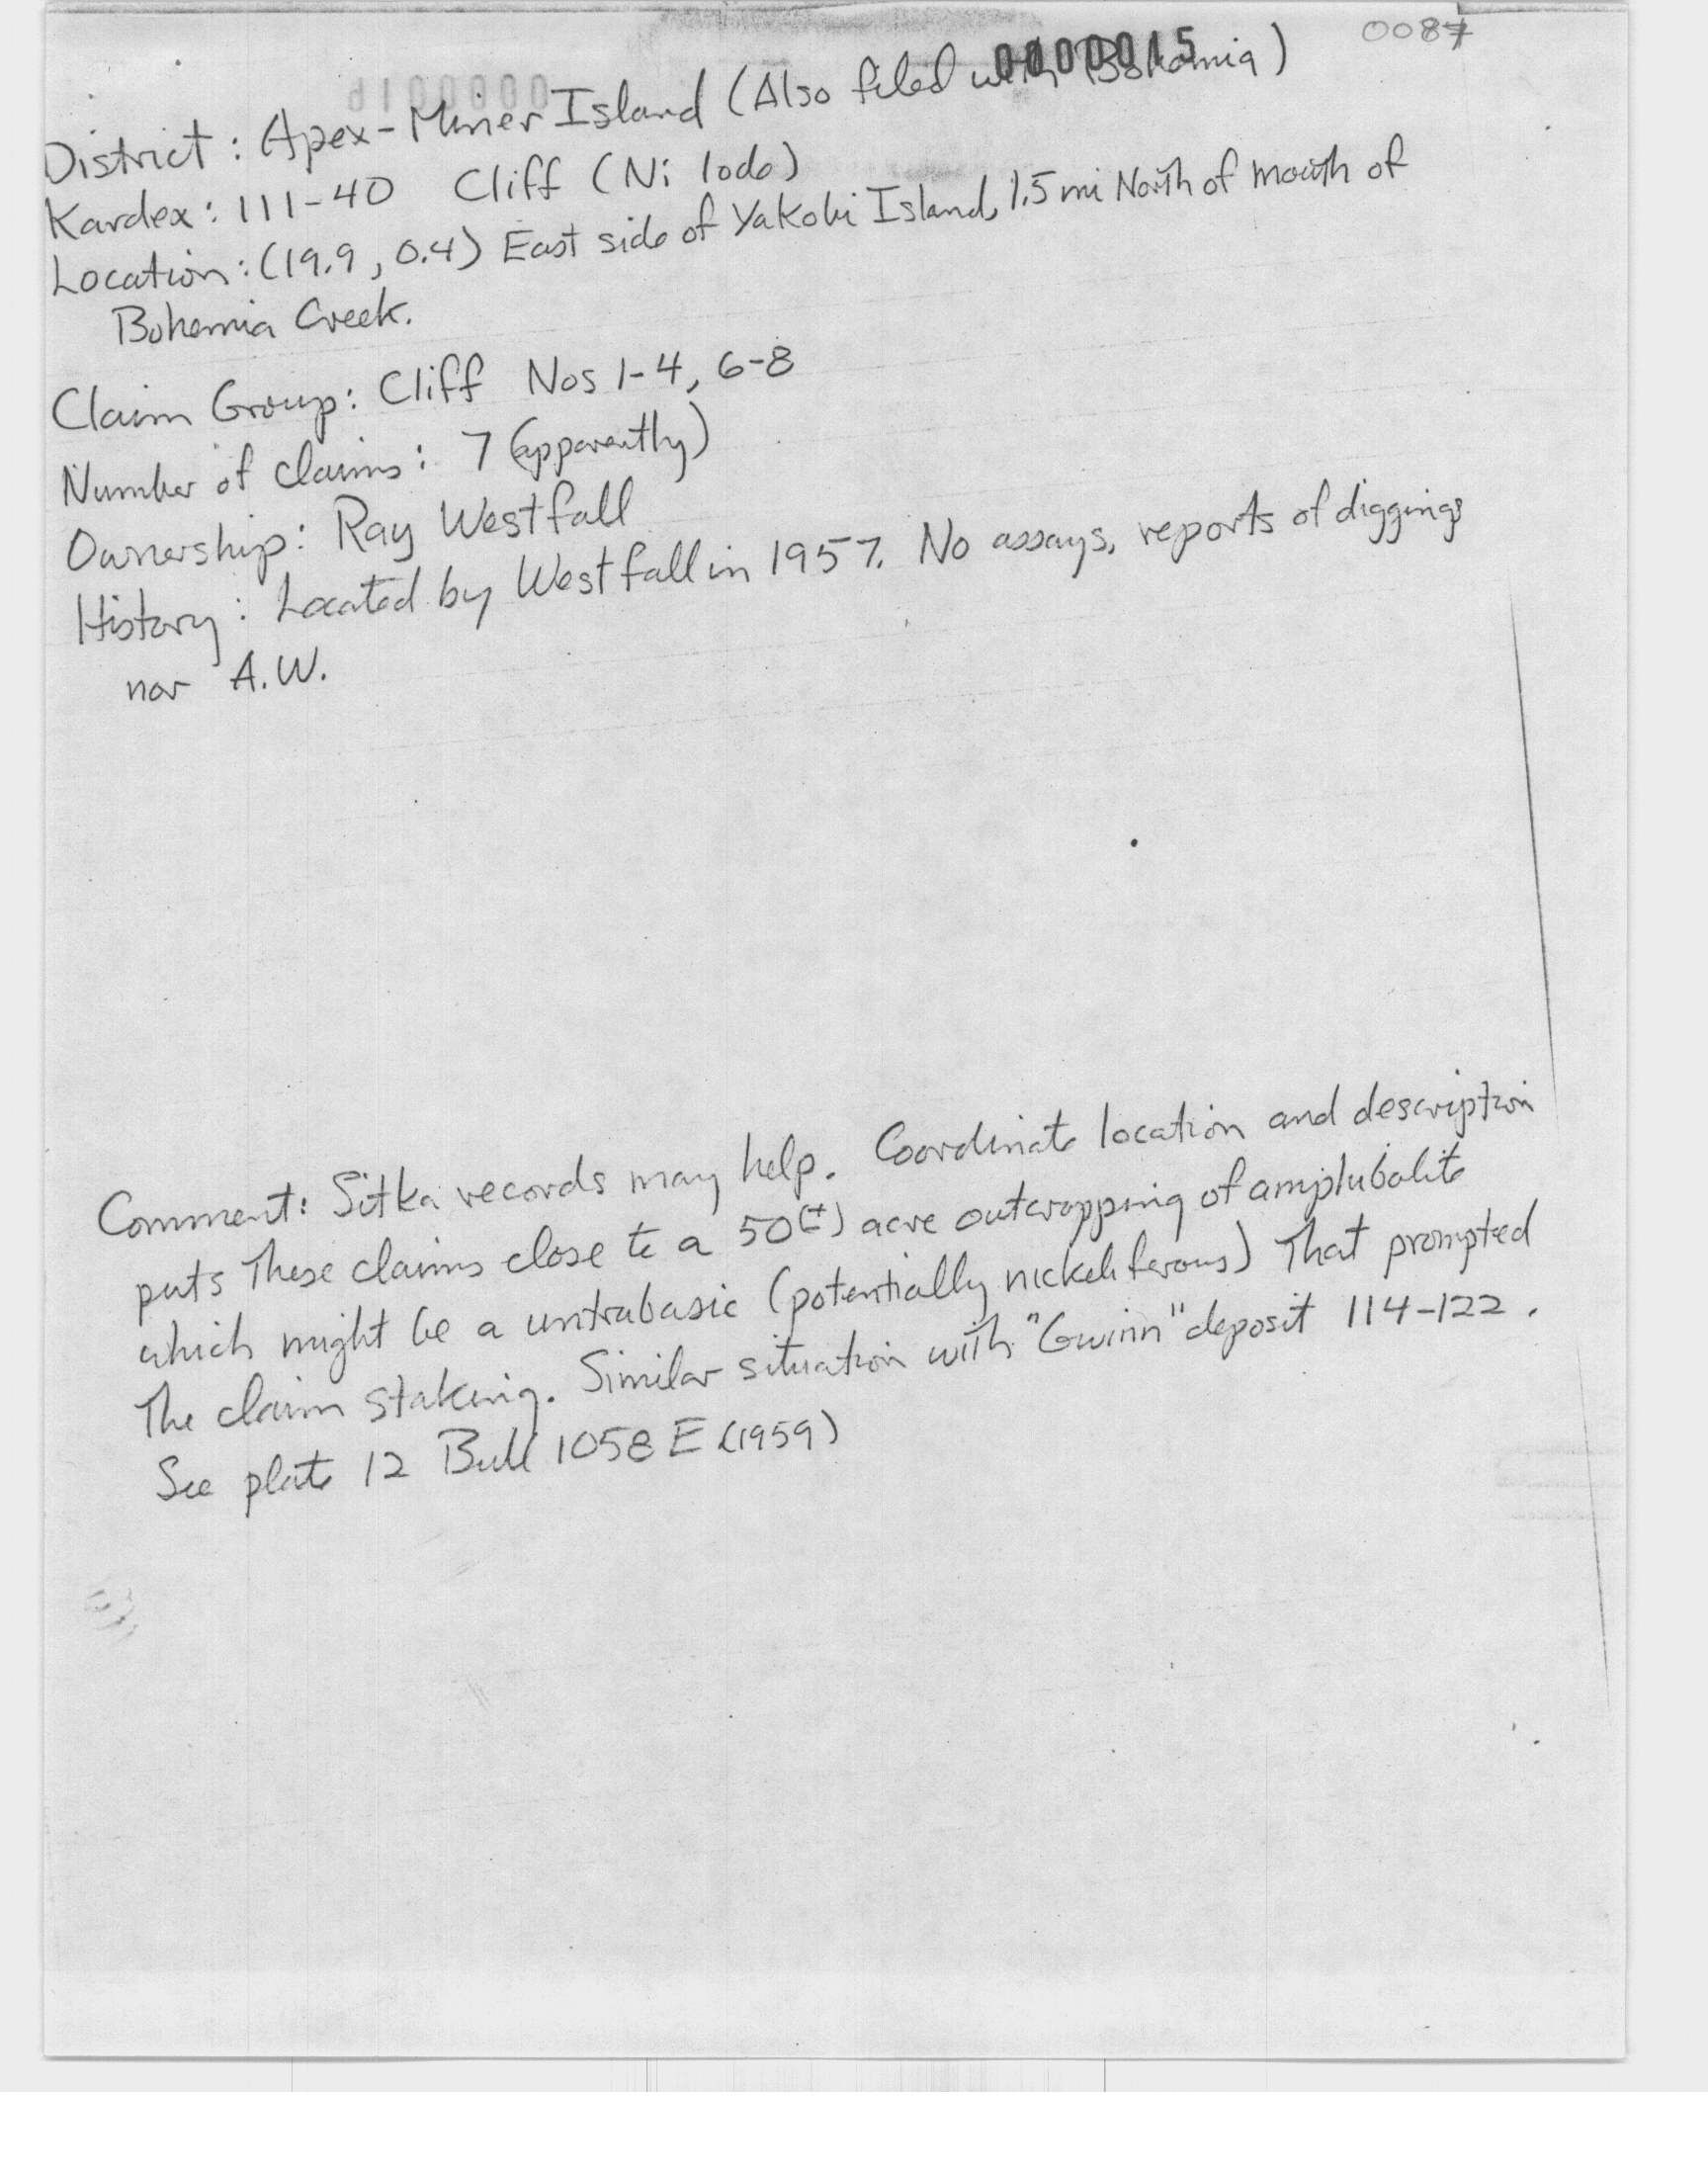 0087
0000015
District: Apex-Miner Island (Also filed with Bohemia)
Kardex: 111-40 Cliff (Ni lode)
Location: (19.9, 0.4) East side of Yakobi Island, 1.5 mi North of mouth of
Bohemia Creek.
Claim Group: Cliff Nos 1-4, 6-8
Number of claims: 7 (apparently)
Ownership: Ray Westfall
History: Located by Westfall in 1957. No assays, reports of diggings
nor A.W.
Comment: Sitka records may help. Coordinate location and description
puts these claims close to a 50(±) acre outcropping of amphibolite
which might be a untrabasic (potentially nickeliferous) that prompted
The claim staking. Similar situation with "Gwinn" deposit 114-122.
See plate 12 Bull 1058 E (1959)